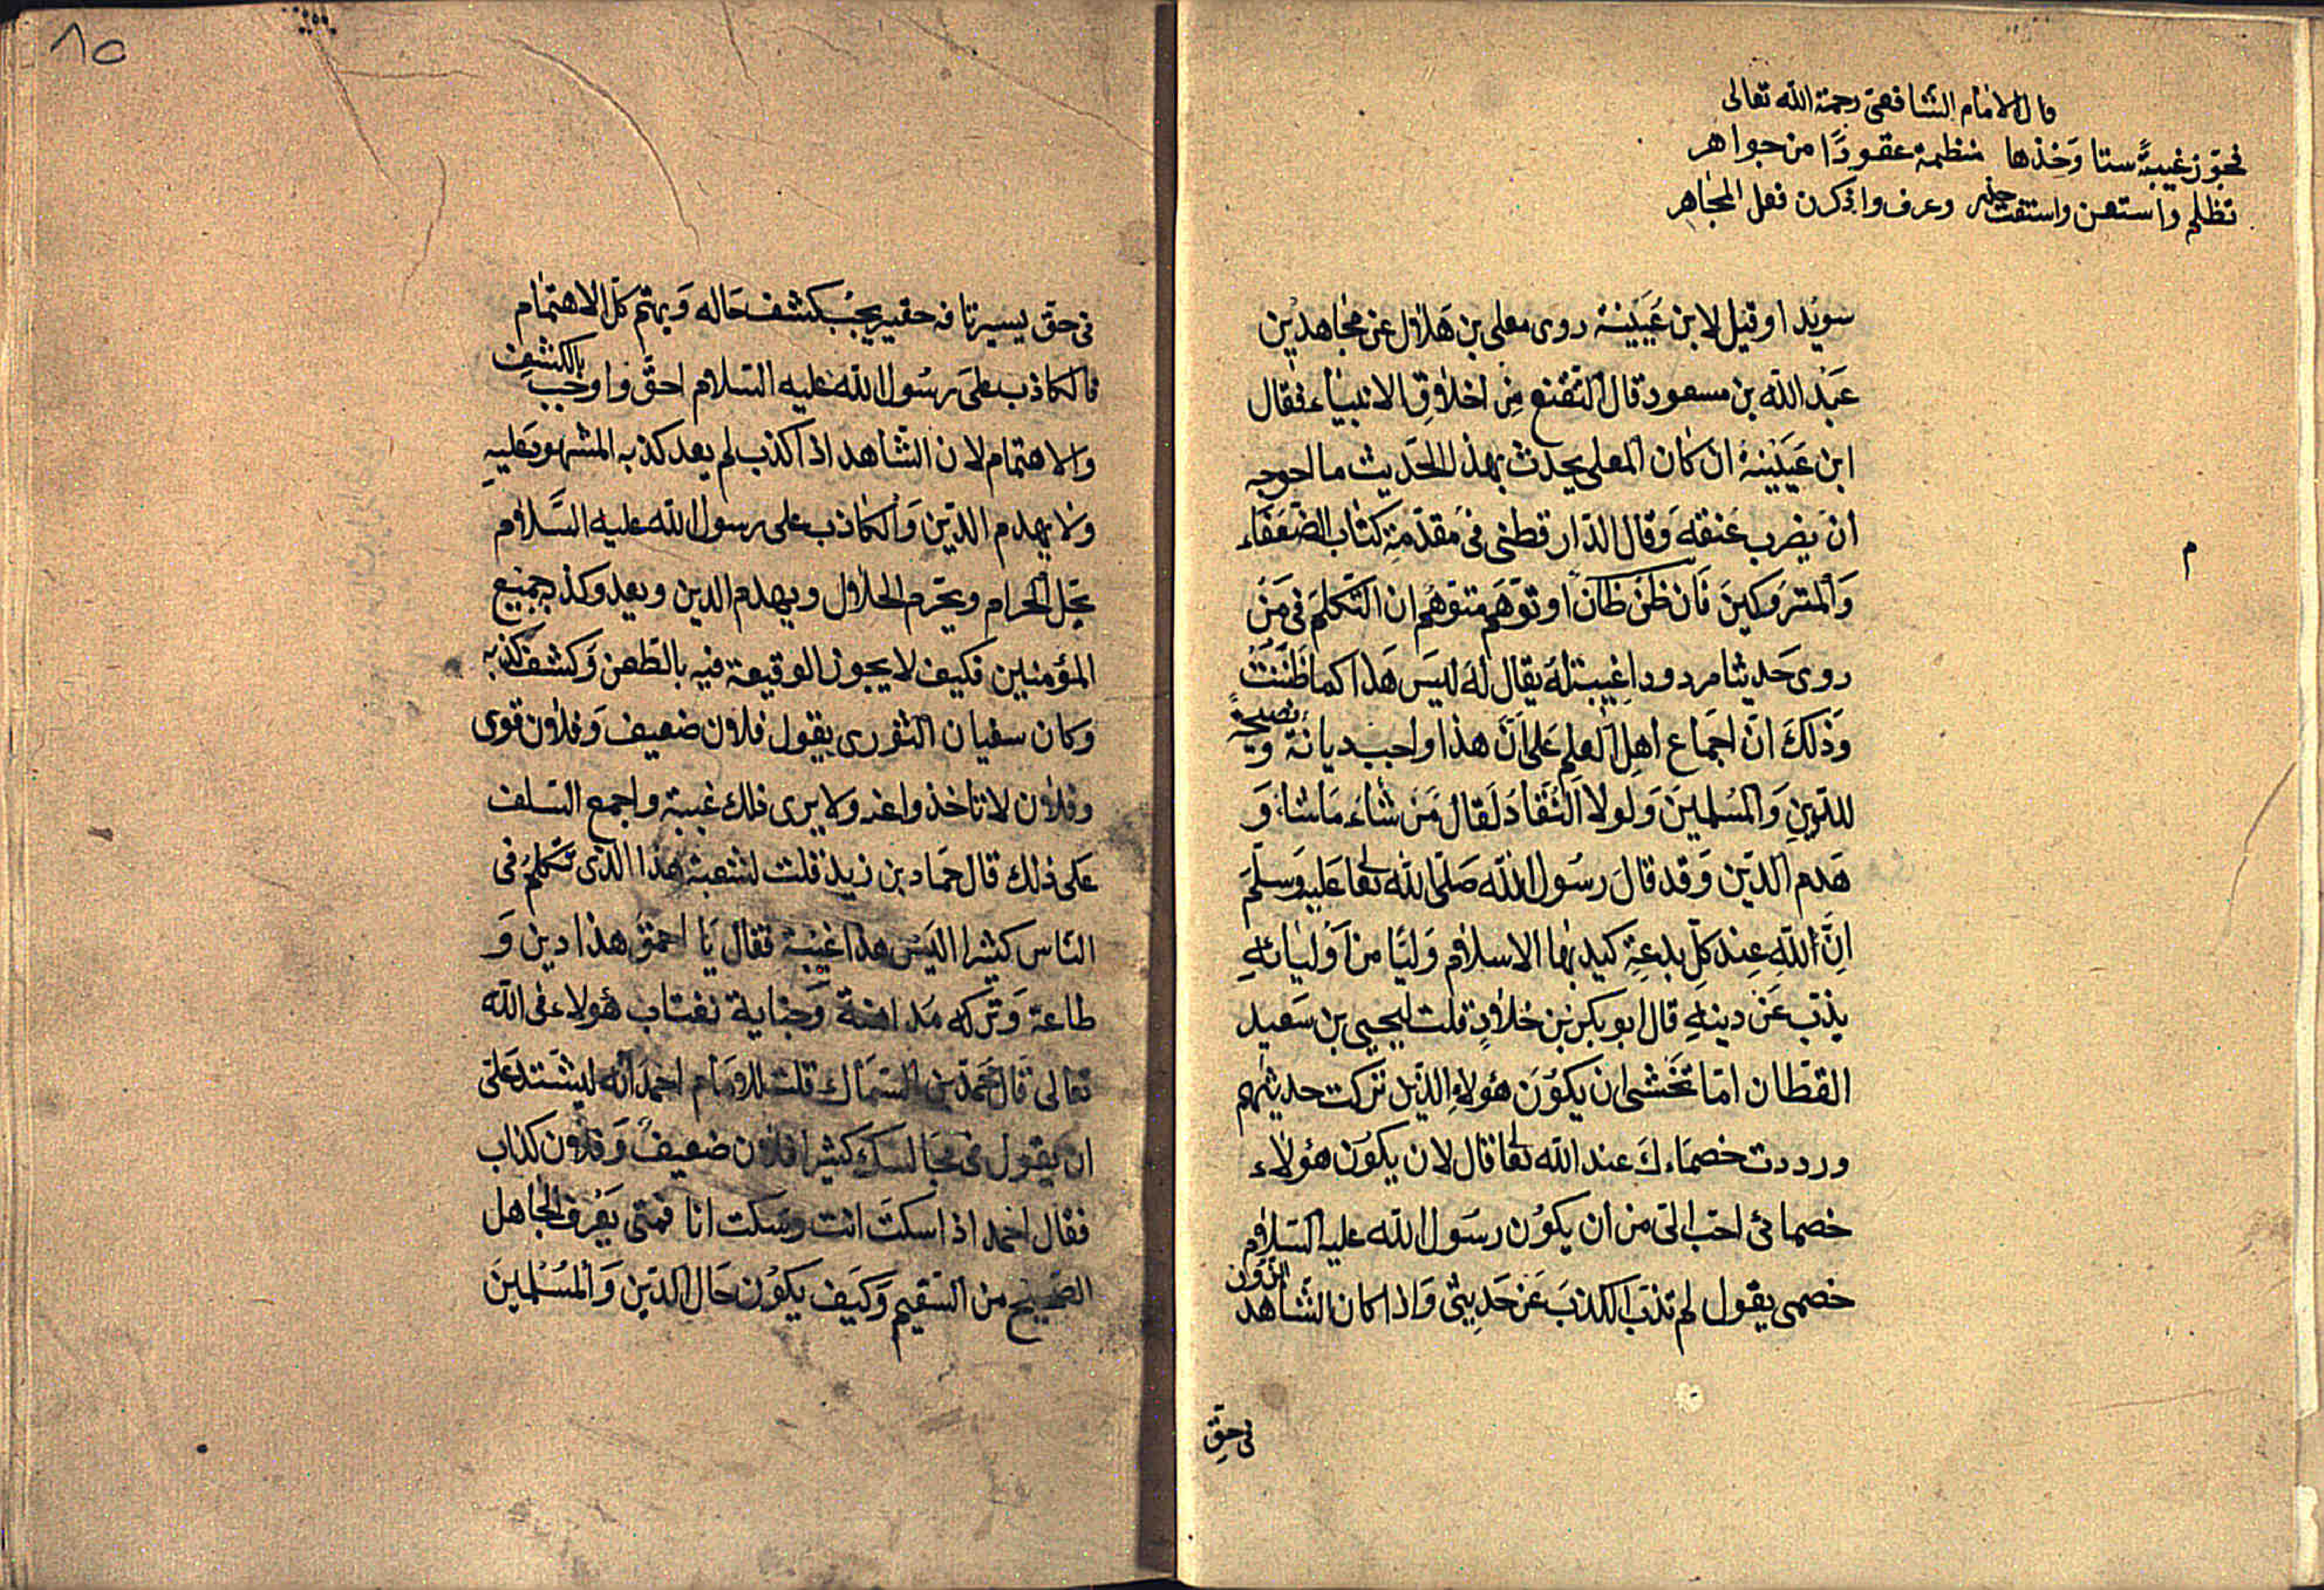 قال الامام الشافعى رحمة الله تعالى
فجوز غيبةً ستا وَخذها منظمة عقودًا من جواهر
تظلم واستعن واستفت حذر وعرف واذكرن فعل المجاهر
سويد او قيل لابن عَيَيْنة روى معلى بن هَلال عن مجاهد بن
عَبْد الله بن مسعود قال التقنع مِن اخلاقِ الانبياء فقال
ابن عَيَيْنة ان كان المعلى يحدث بهذا الحَديث ما احوجه
ان يضرب عنقه وَقال الدّارقطنى فى مقدّمة كتاب الضّعَفَاء
وَالمتروكينَ فَان ظَنَ ظان او توَهَم متوَهُم ان التكلمَ فى مَنْ
روى حَديثا مردودا غِيبَة لَهُ يقال لَهُ ليَس هَذا كما ظَنَنْتَ
وَذَلكَ انّ اجماع اهِل العِلم عَلى اَنّ هذا واجب ديانة وَنصيحةً
للدّينِ وَالمسُلمينَ وَلولا النّقادَ لَقال مَن شاءَ مَا شاء وَ
هَدم الدّين وَقد قالَ رسُول الله صَلّى الله تعا عَليه وَسلّمَ
انِّ لله عِند كلّ بدعِة كيد بهَا الاسلام وَليّا من اوْليَائه
يذب عَنْ دينهِ قال ابو بكر بْن خلادٍ قلت ليحيى بن سَعيد
القطان امّا تخَشى ان يكوُنَ هؤلاءِ الذّين تركت حديثهم
ورددت خصمَاءكَ عند الله تعا قال لان يكوُن هؤلاء
خصمائى احب الىّ من ان يكوُن رسَول الله عليه السّلام
خصمى يقول لم تذبّ الكذبَ عَن حَديثى وَاذا كان الشاهد الزور
فى حقِ
م
٨٥
فى حق يسير تافه حقير يجبُ كشف حَاله وَيهتم كلّ الاهتمام
فالكاذب على رسُول الله عليه السّلام احقّ واوجب بالكشف
والاهتمام لان الشاهد اذا كذب لم يعد كذبه المشهود عليه
ولا يهدم الدّين وَالكاذب على رسول الله عليه السَّلام
يحّل الحرام ويحّرم الحلال ويهدم الدين ويعدو كذبه جميع
المؤمنين فكيف لا يجوز الوقيعة فيه بالطّعن وَكشف كذبه
وكان سفيان الثورى يقول فلان ضعيف وَفلان قوى
وفلان لا تاخذوا عنه ولا يرى ذلك غيبة واجمع السّلف
على ذلك قال حَماد بن زيد قلت لشعبة هذا الذى تتكلمُ فى
النّاس كثيرا اليَس هذا غيْبة فقال يَا احمق هذا دين وَ
طاعة وَتركه مَداهنة وَجناية نغتاب هؤلاء فى الله
تعالى قال محَمدّ بن السّمَاك قلت للامَام احمدَ انّه ليشَتد عَلىّ
ان يقول فى مجَالسك كثيرا فلان ضعيف وَفلان كذاب
فقال احمد اذا سكتَ انت وسَكت انا فمتى يَعْرف الجاهل
الصّحيح من السّقيم وَكيَف يكوُن حَال الدّين وَالمسُلمينَ